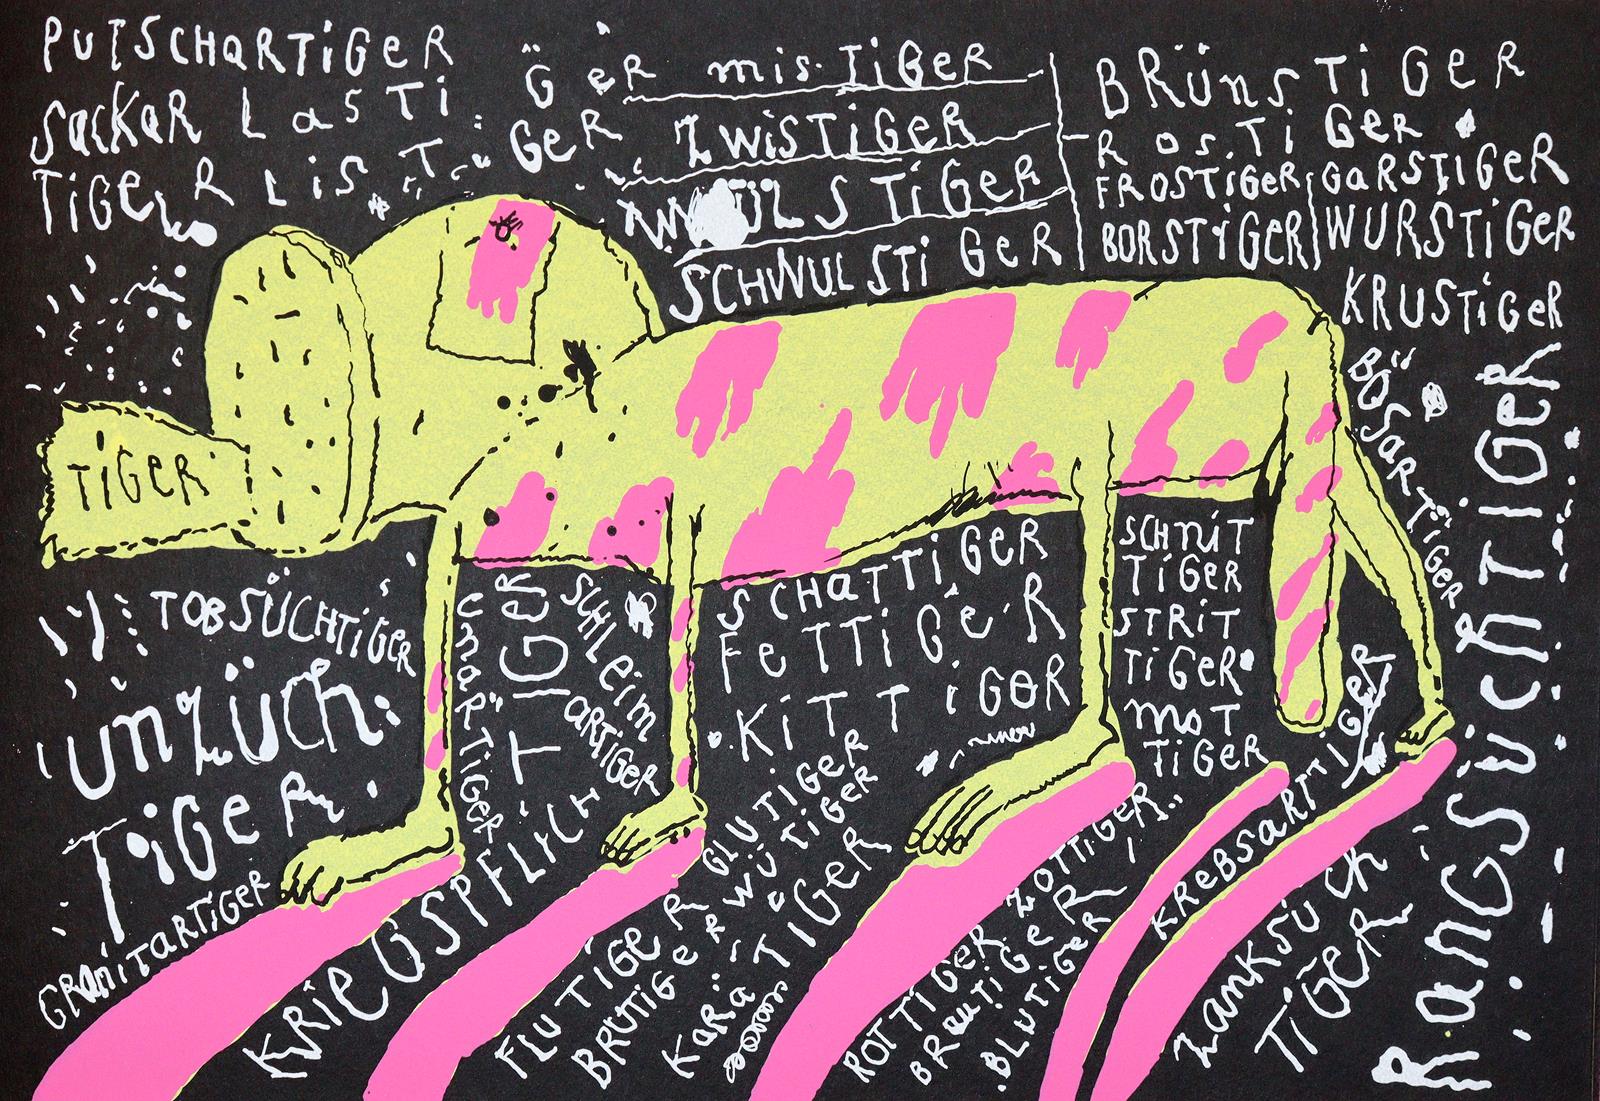 PUTSCHARTIGER
SACKARLASTIGER
TIGER LISTIGER
MISTIGER
ZWISTIGER
WÜLSTIGER
SCHWULSTIGER
BRÜNSTIGER
ROSTIGER
FROSTIGER
BORSTIGER
GARSTIGER
WURSTIGER
KRUSTIGER
BÖSARTIGER
RANGSÜCHTIGER
TIGER
TOBSÜCHTIGER
UNZÜCH
TIGER
GRANITARTIGER
UNARTIGER
KRIEGSPFLICHTIGER
SCHLEIM
ARTIGER
SCHATTIGER
FETTIGER
KITTIGER
SCHNIT
TIGER
STRIT
TIGER
MOT
TIGER
FLUTIGER GLUTIGER
BRUTIGER WÜTIGER
KARÄTIGER
ROTTIGER ZOTTIGER
BRAUTIGER
BLUTIGER
KREBSARTIGER
ZANKSÜCH
TIGER